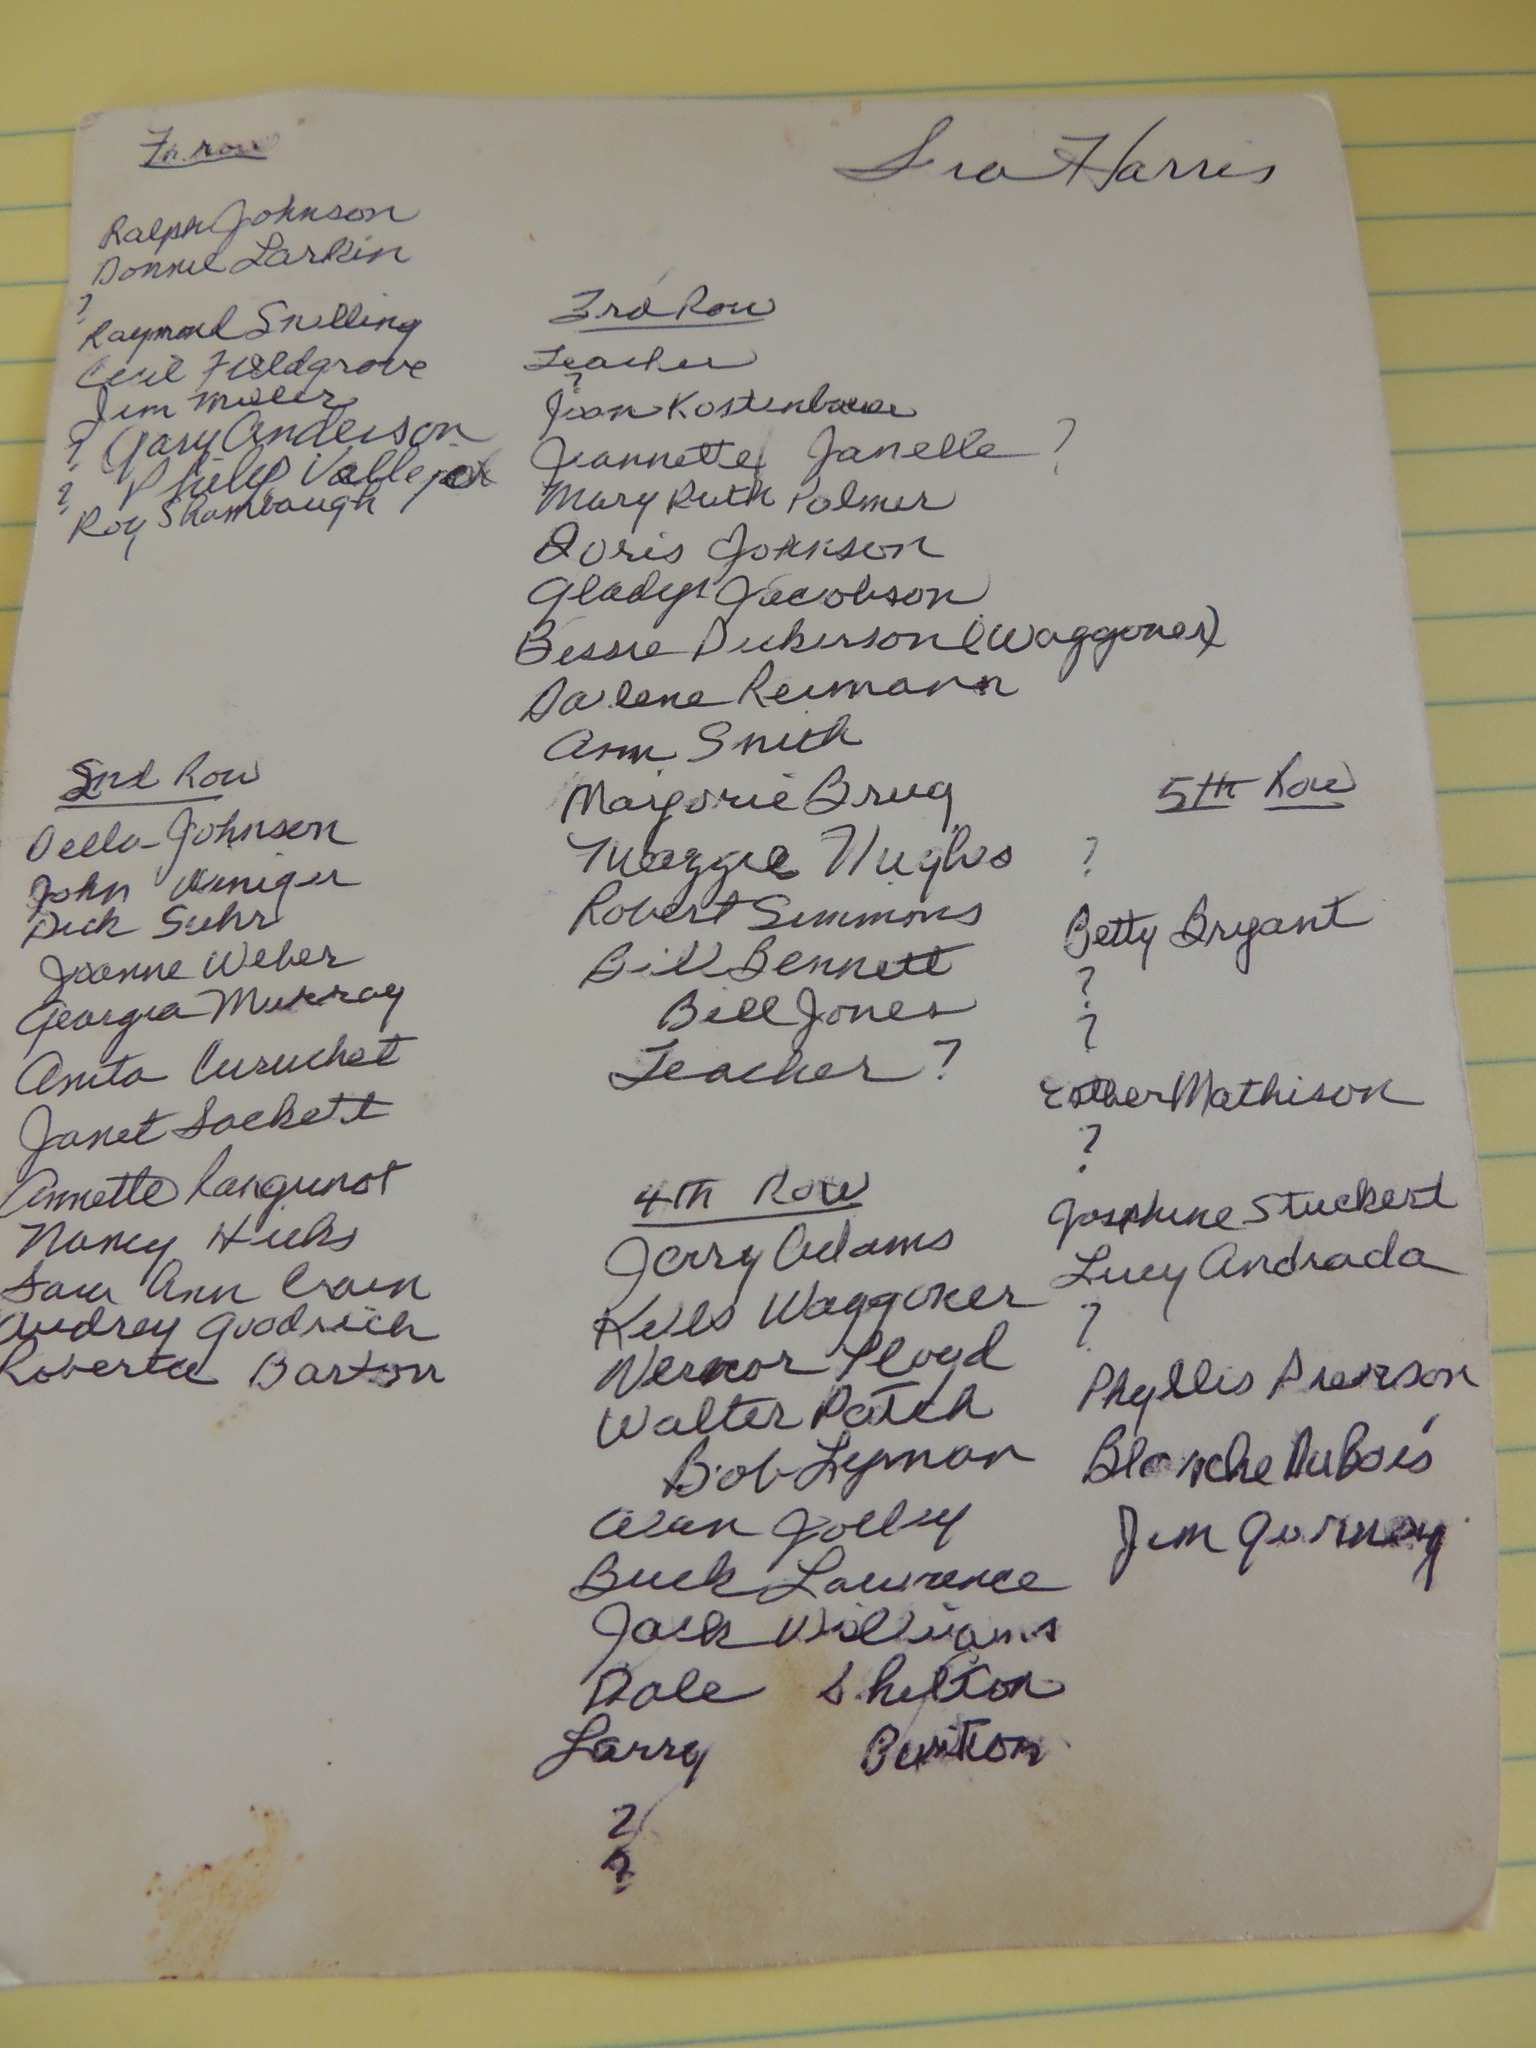 Fr. row
Ralph Johnson
Donnie Larkin
?
Raymond Snelling
Cecil Fieldgrove
Jim Miller
? Gary Anderson
? Philip Vallejo
Roy Shambaugh
2nd Row
Della Johnson
John Winiger
Dick Suhr
Joanne Weber
Georgia Murray
Anita Curuchet
Janet Sackett
Annette
Nancy Hicks
Sara Ann Crain
Audrey Goodrich
Roberta Barton
Harris
3rd Row
Teacher
?
Jean Kostenbauer
Jeannette Janelle ?
Mary Ruth Palmer
Doris Johnson
Gladys Jacobson
Bessie Dickerson (Waggoner)
Darlene Reimann
Ann Smith
Marjorie Brug
Maggie Hughes
Robert Simmons
Bill Bennett
Bill Jones
Teacher ?
4th Row
Jerry Adams
Waggoner
Lloyd
Walter Patch
Bob Lyman
Alan Jolley
Buck Lawrence
Jack Williams
Dale Shelton
Larry
?
?
5th Row
?
Betty Bryant
?
?
Esther Mathison
?
Josephine Stuckert
Lucy Andrada
?
Phyllis Pierson
Blanche DuBois
Jim Gurney